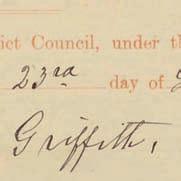 ict Council, under th
23rd day of
Griffith,